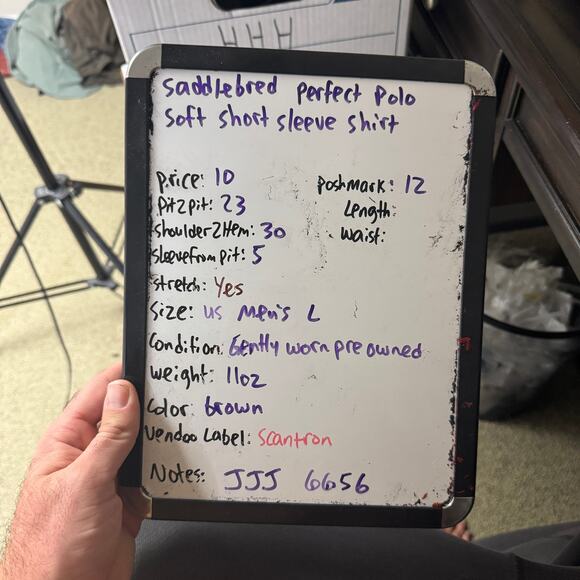 HHH
Saddlebred perfect polo
soft short sleeve shirt
price: 10
poshmark: 12
pit2pit: 23
Length:
shoulder2Hem: 30
waist:
sleevefrompit: 5
stretch: Yes
Size: US Men's L
Condition: Gently worn pre owned
weight: 11oz
Color: brown
Vendoo Label: Scantron
Notes: JJJ 6656